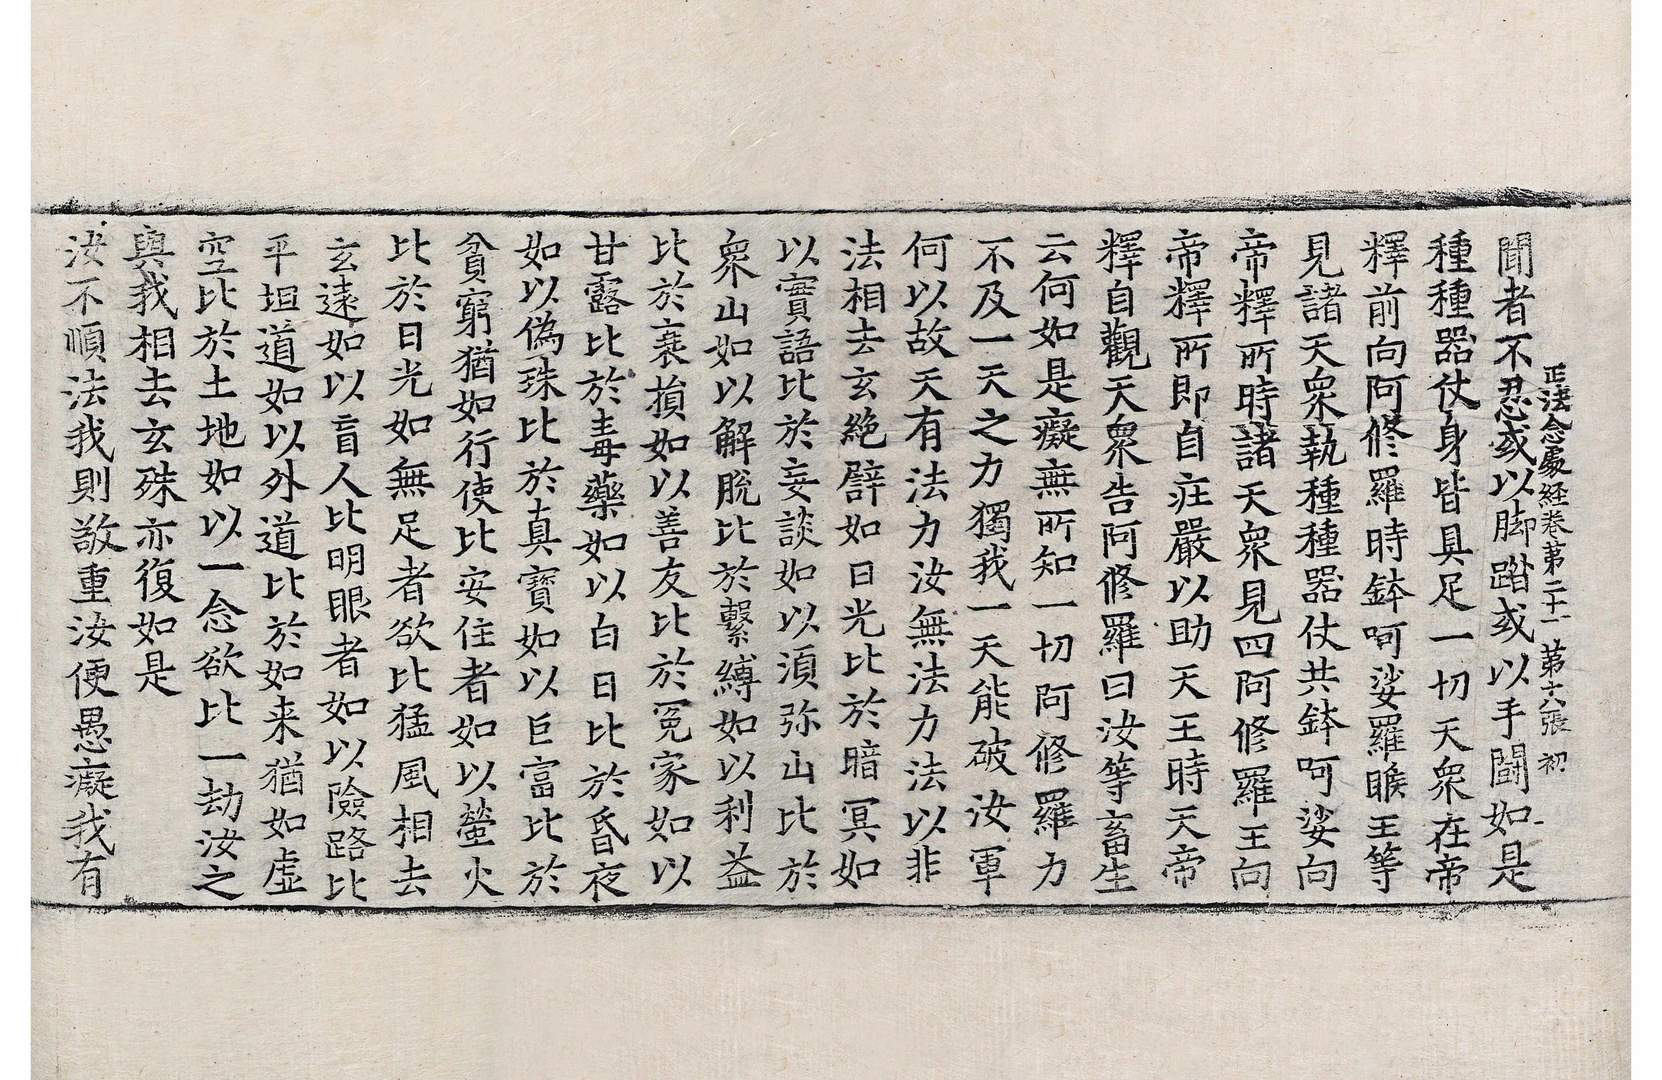 正法念處経卷第二十一　第六張　初
聞者不忍或以脚踏或以手闘如是
種種器仗身皆具足一切天衆在帝
釋前向阿修羅時鉢呵娑羅睺王等
見諸天衆執種種器仗共鉢呵娑向
帝釋所時諸天衆見四阿修羅王向
帝釋所即自疘嚴以助天王時天帝
釋自觀天衆告阿修羅曰汝等畜生
云何如是癡無所知一切阿修羅力
不及一天之力獨我一天能破汝軍
何以故天有法力汝無法力法以非
法相去玄絶譬如日光比於暗冥如
以實語比於妄談如以湏弥山比於
衆山如以解脫比於繫縛如以利益
比於衰損如以善友比於冤家如以
甘露比於毒藥如以白日比於昏夜
如以偽珠比於真寶如以巨富比於
貧窮猶如行使比安住者如以螢火
比於日光如無足者欲比猛風相去
玄遠如以盲人比明眼者如以險路比
平坦道如以外道比於如来猶如虛
空比於土地如以一念欲比一劫汝之
與我相去玄殊亦復如是
汝不順法我則敬重汝便愚癡我有